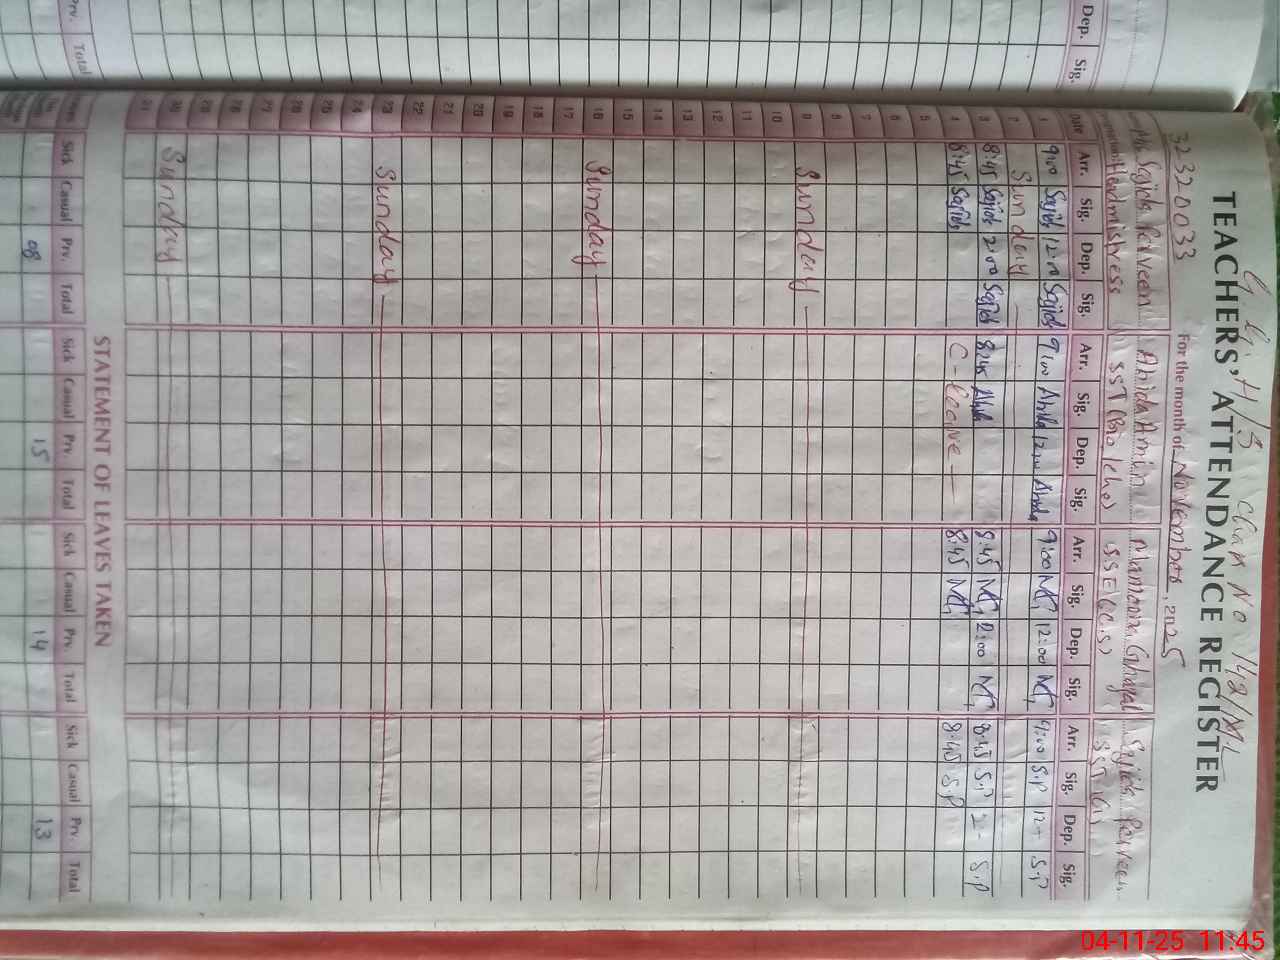 G.G.H/S Chak No 142/ML
TEACHERS' ATTENDANCE REGISTER
32320033 For the month of November, 2025
Sajida Perveen Abida Amin Mamoona Sajida Perveen
Headmistress SST (Bio/Che) SSE (C.S) SST (G)
Date Arr. Sig. Dep. Sig. Arr. Sig. Dep. Sig. Arr. Sig. Dep. Sig. Arr. Sig. Dep. Sig.
1 9:00 Sajida 12:00 Sajida 9:00 Abida 12:00 Abida 9:00 MG 12:00 MG 9:00 S.P 12- S.P
2 Sunday
3 8:45 Sajida 2:00 Sajida 8:45 Abida 8:45 MG 2:00 MG 8:45 S.P 2- S.P
4 8:45 Sajida C-Leave 8:45 MG 8:45 S.P
5
6
7
8
9 Sunday
10
11
12
13
14
15
16 Sunday
17
18
19
20
21
22
23 Sunday
24
25
26
27
28
29
30 Sunday
31
STATEMENT OF LEAVES TAKEN
Sick Casual Prv. Total Sick Casual Prv. Total Sick Casual Prv. Total Sick Casual Prv. Total
08 15 14 13
Dep. Sig.
Prv. Total
04-11-25 11:45